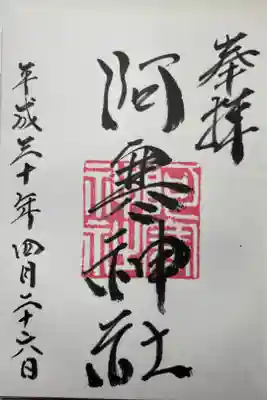 奉拝
阿寒神社
平成三十年四月二十六日